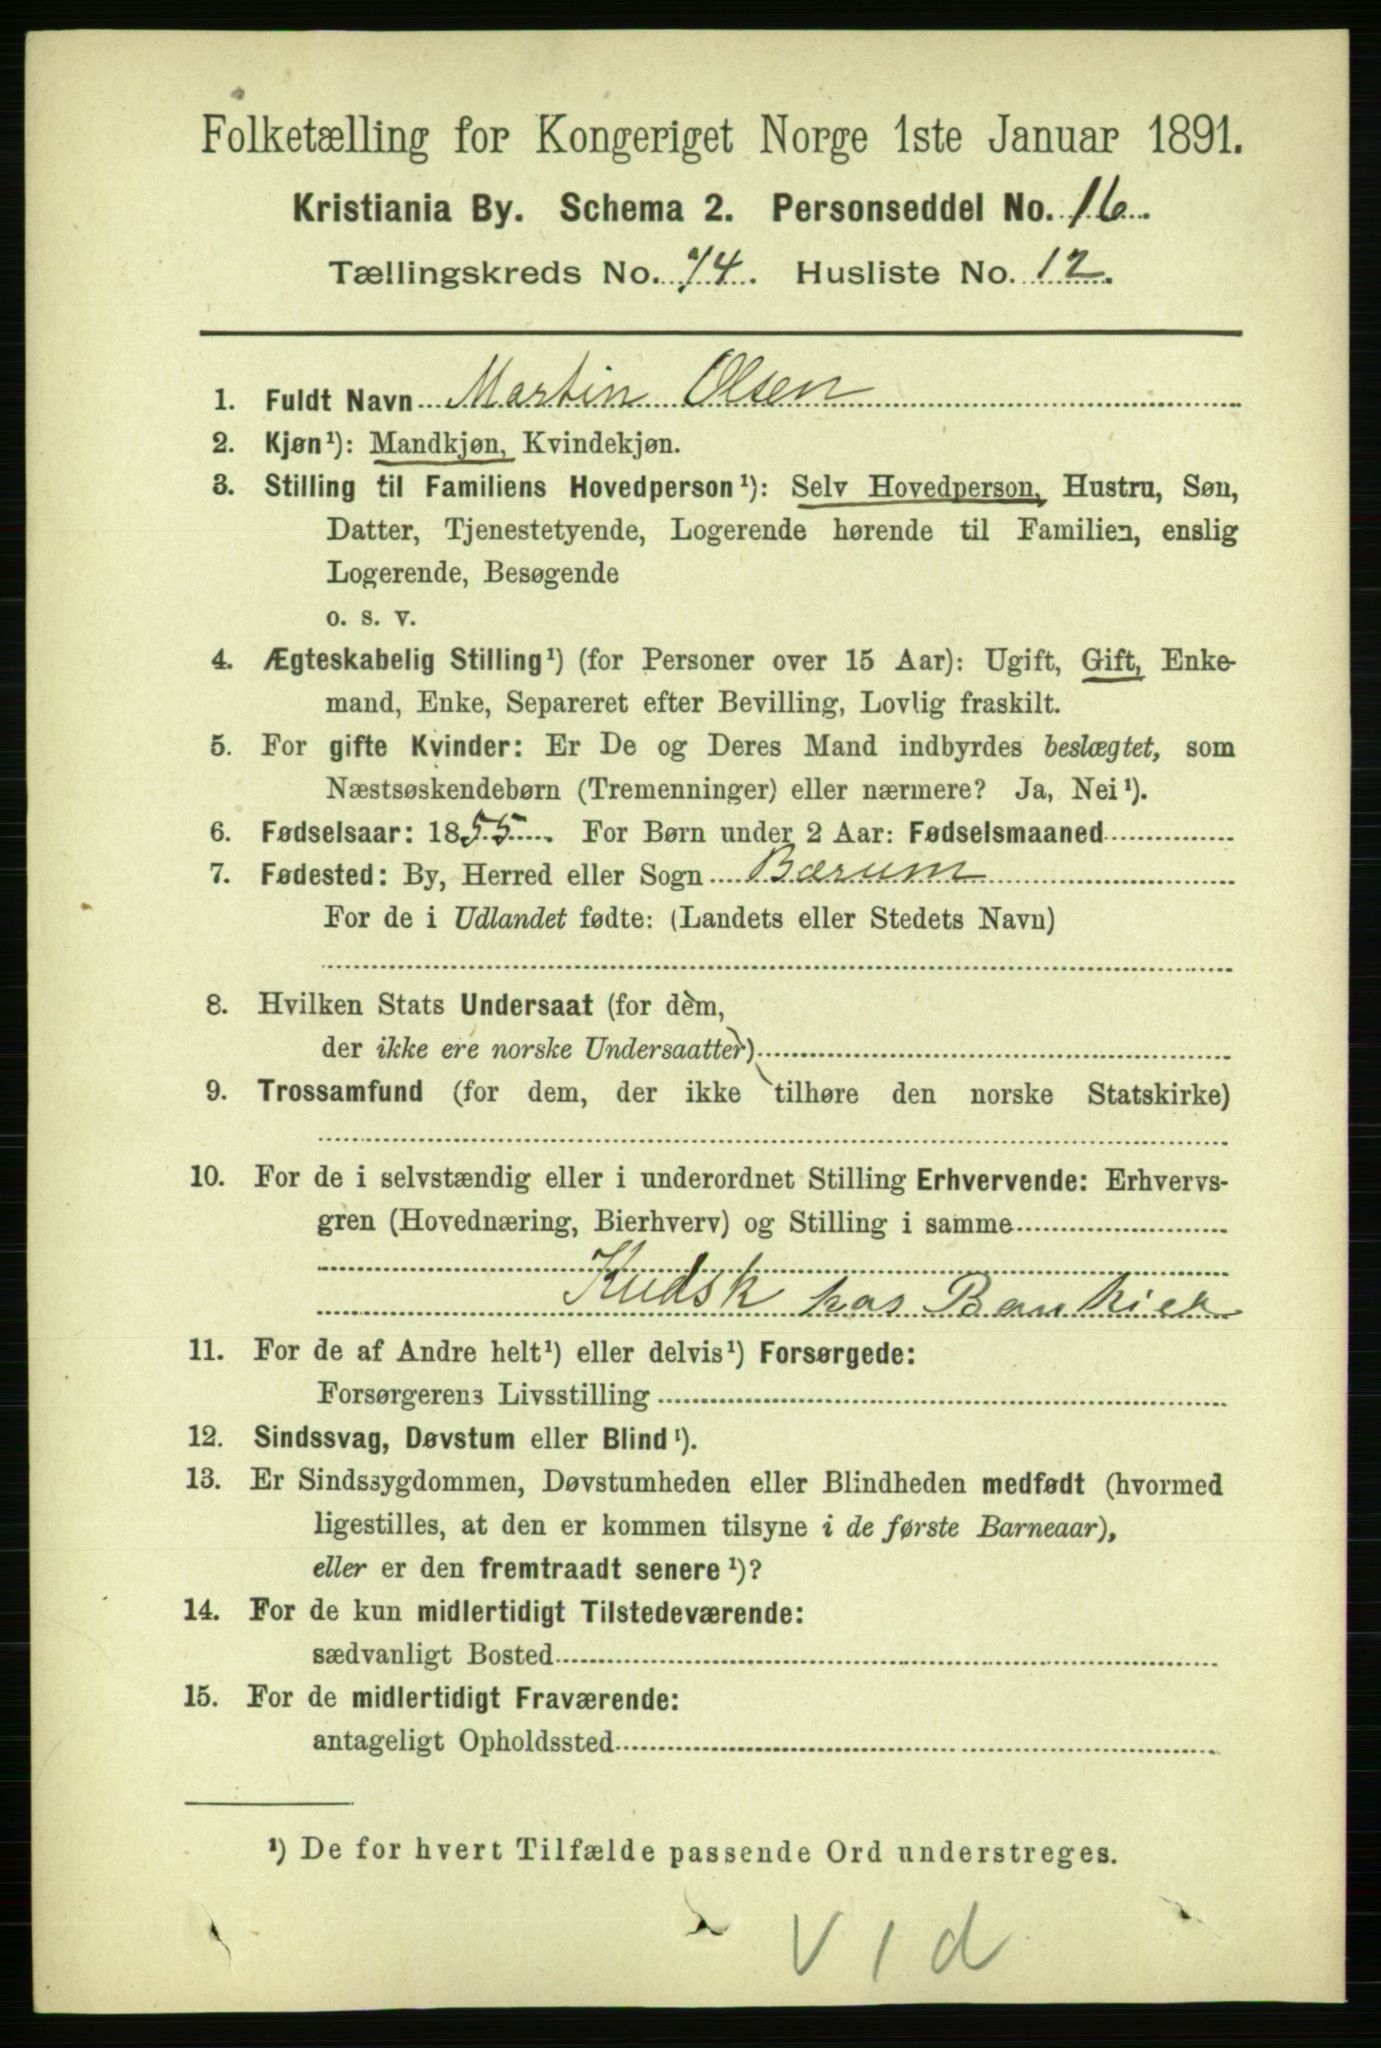 Folketælling for Kongeriget Norge 1ste Januar 1891.
Kristiania By. Schema 2. Personseddel No. 16.
Tællingskreds No. 74. Husliste No. 12.
1. Fuldt Navn Martin Olsen
2. Kjøn¹): Mandkjøn, Kvindekjøn.
3. Stilling til Familiens Hovedperson¹): Selv Hovedperson, Hustru, Søn,
Datter, Tjenestetyende, Logerende hørende til Familien, enslig
Logerende, Besøgende
o. s. v.
4. Ægteskabelig Stilling¹) (for Personer over 15 Aar): Ugift, Gift, Enke-
mand, Enke, Separeret efter Bevilling, Lovlig fraskilt.
5. For gifte Kvinder: Er De og Deres Mand indbyrdes beslægtet, som
Næstsøskendebørn (Tremenninger) eller nærmere? Ja, Nei¹).
6. Fødselsaar: 1855. For Børn under 2 Aar: Fødselsmaaned
7. Fødested: By, Herred eller Sogn Bærum
For de i Udlandet fødte: (Landets eller Stedets Navn)
8. Hvilken Stats Undersaat (for dem,
der ikke ere norske Undersaatter)
9. Trossamfund (for dem, der ikke tilhøre den norske Statskirke)
10. For de i selvstændig eller i underordnet Stilling Erhvervende: Erhvervs-
gren (Hovednæring, Bierhverv) og Stilling i samme
Kudsk hos Bankier
11. For de af Andre helt¹) eller delvis¹) Forsørgede:
Forsørgerens Livsstilling
12. Sindssvag, Døvstum eller Blind¹).
13. Er Sindssygdommen, Døvstumheden eller Blindheden medfødt (hvormed
ligestilles, at den er kommen tilsyne i de første Barneaar),
eller er den fremtraadt senere¹)?
14. For de kun midlertidigt Tilstedeværende:
sædvanligt Bosted
15. For de midlertidigt Fraværende:
antageligt Opholdssted
¹) De for hvert Tilfælde passende Ord understreges.
V 1 d